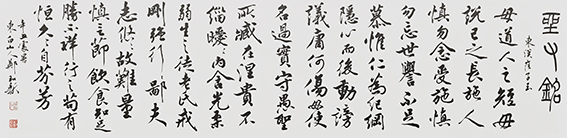 座右銘
東漢崔子玉
毋道人之短毋
說己之長施人
慎勿念受施慎
勿忘世譽不足
慕惟仁為紀綱
隱心而後動謗
議庸何傷毋使
名過實守愚聖
所臧在涅貴不
緇曖曖內含光柔
弱生之徒老氏戒
剛強行行鄙夫
志悠悠故難量
慎言節飲食知足
勝不祥行之苟有
恆久久自芬芳